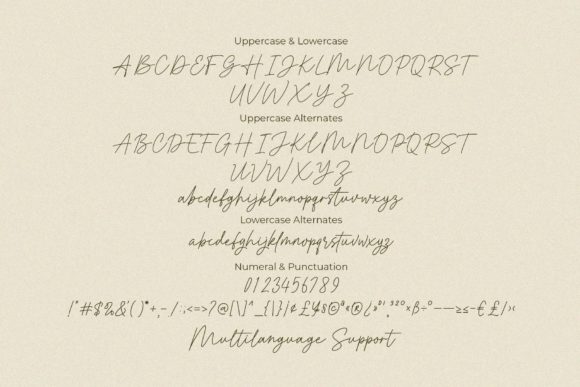 Uppercase & Lowercase
ABCDEFGHIJKLMNOPQRST
UVWXYZ
Uppercase Alternates
ABCDEFGHIJKLMNOPQRST
UVWXYZ
abcdefghijklmnopqrstuvwxyz
Lowercase Alternates
abcdefghijklmnopqrstuvwxyz
Numeral & Punctuation
0123456789
!"#$%&'()*+,-/:;<=>?@[\]^_{|}/¢£¥§©ª«®¿»°¹,³²º×β÷°–—≥≤-€£/›‹
Multilanguage Support